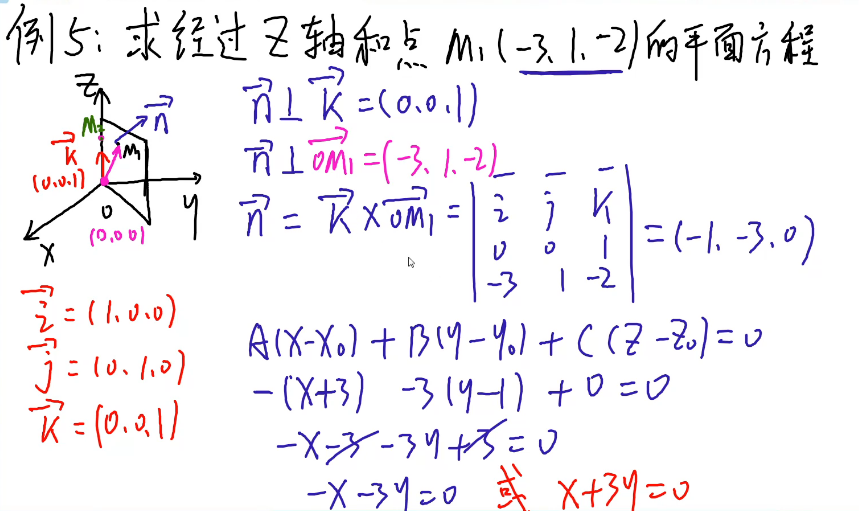 例5: 求经过Z轴和点 M₁(-3.1.-2)的平面方程
Z
M₂
n⃗
k⃗
M₁
(0.0.1)
0
y
(0.0.0)
x
n⃗⊥k⃗=(0.0.1)
n⃗⊥OM₁⃗=(-3.1.-2)
n⃗ = k⃗×OM₁⃗ = | i j k | = (-1.-3.0)
0 0 1
-3 1 -2
i⃗=(1.0.0)
j⃗=(0.1.0)
k⃗=(0.0.1)
A(x-x₀)+B(y-y₀)+C(z-z₀)=0
-(x+3) -3(y-1) +0=0
-x-3-3y+3=0
-x-3y=0 或 x+3y=0